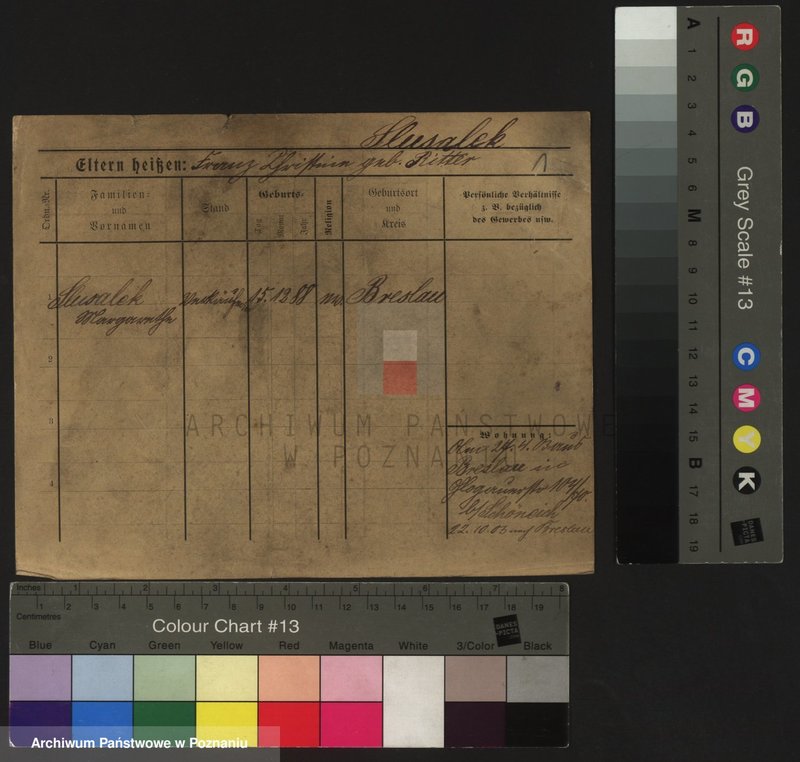 Slusalek
Eltern heißen: Franz Christina geb. Ritter
1
Ordn.-Nr.
Familien-
und
Vornamen
Stand
Geburts-
Tag
Monat
Jahr
Religion
Geburtsort
und
Kreis
Persönliche Verhältnisse
z. B. bezüglich
des Gewerbes usw.
Slusalek
Margarethe
15. 12 88
Breslau
2
3
4
Wohnung:
24. 4.
Breslau
Glogauerstr
b/ Schöneich
22.10.03 auf Breslau
ARCHIWUM PAŃSTWOWE
W POZNANIU
Inches
1 2 3 4 5 6 7 8
1 2 3 4 5 6 7 8 9 10 11 12 13 14 15 16 17 18 19
Centimetres
Colour Chart #13
DANES
-PICTA
Blue Cyan Green Yellow Red Magenta White 3/Color Black
Archiwum Państwowe w Poznaniu
A 1 2 3 4 5 6 M 8 9 10 11 12 13 14 15 B 17 18 19
R G B
Grey Scale #13
C M Y K
DANES
-PICTA